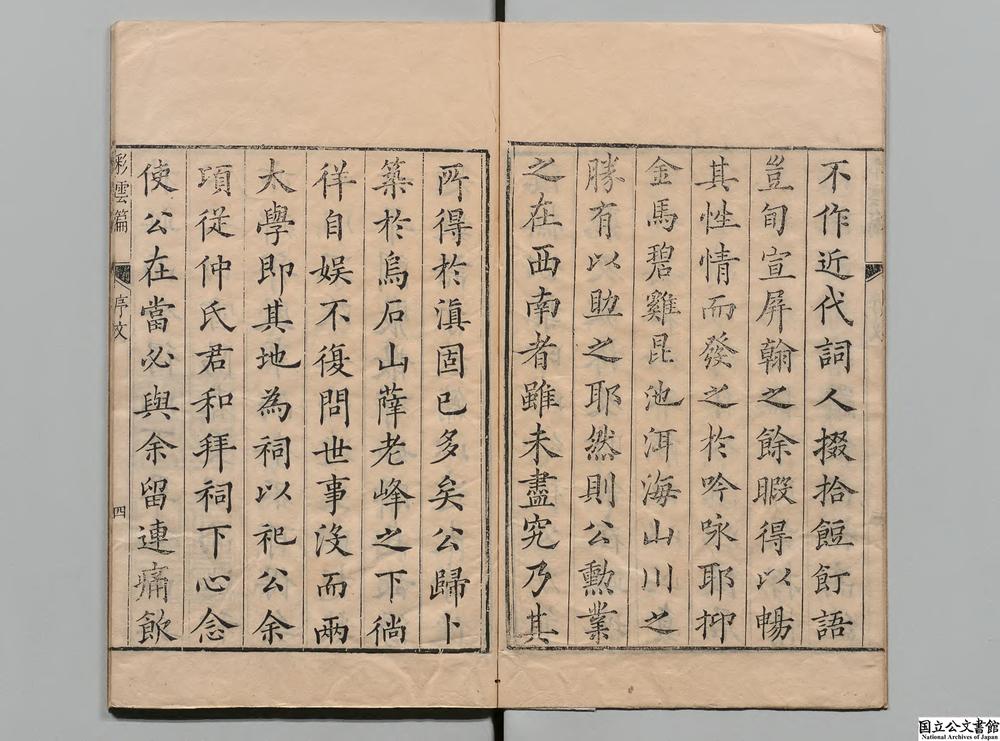 不作近代詞人掇拾餖飣語
豈旬宣屏翰之餘暇得以暢
其性情而發之於吟咏耶抑
金馬碧雞昆池洱海山川之
勝有以助之耶然則公勲業
之在西南者雖未盡究乃其
所得於滇固已多矣公歸卜
築於烏石山薩老峰之下徜
徉自娱不復問世事沒而兩
太學即其地為祠以祀公余
項從仲氏君和拜祠下心念
使公在當必與余留連痛飲
彩雲篇
序文
四
国立公文書館
National Archives of Japan